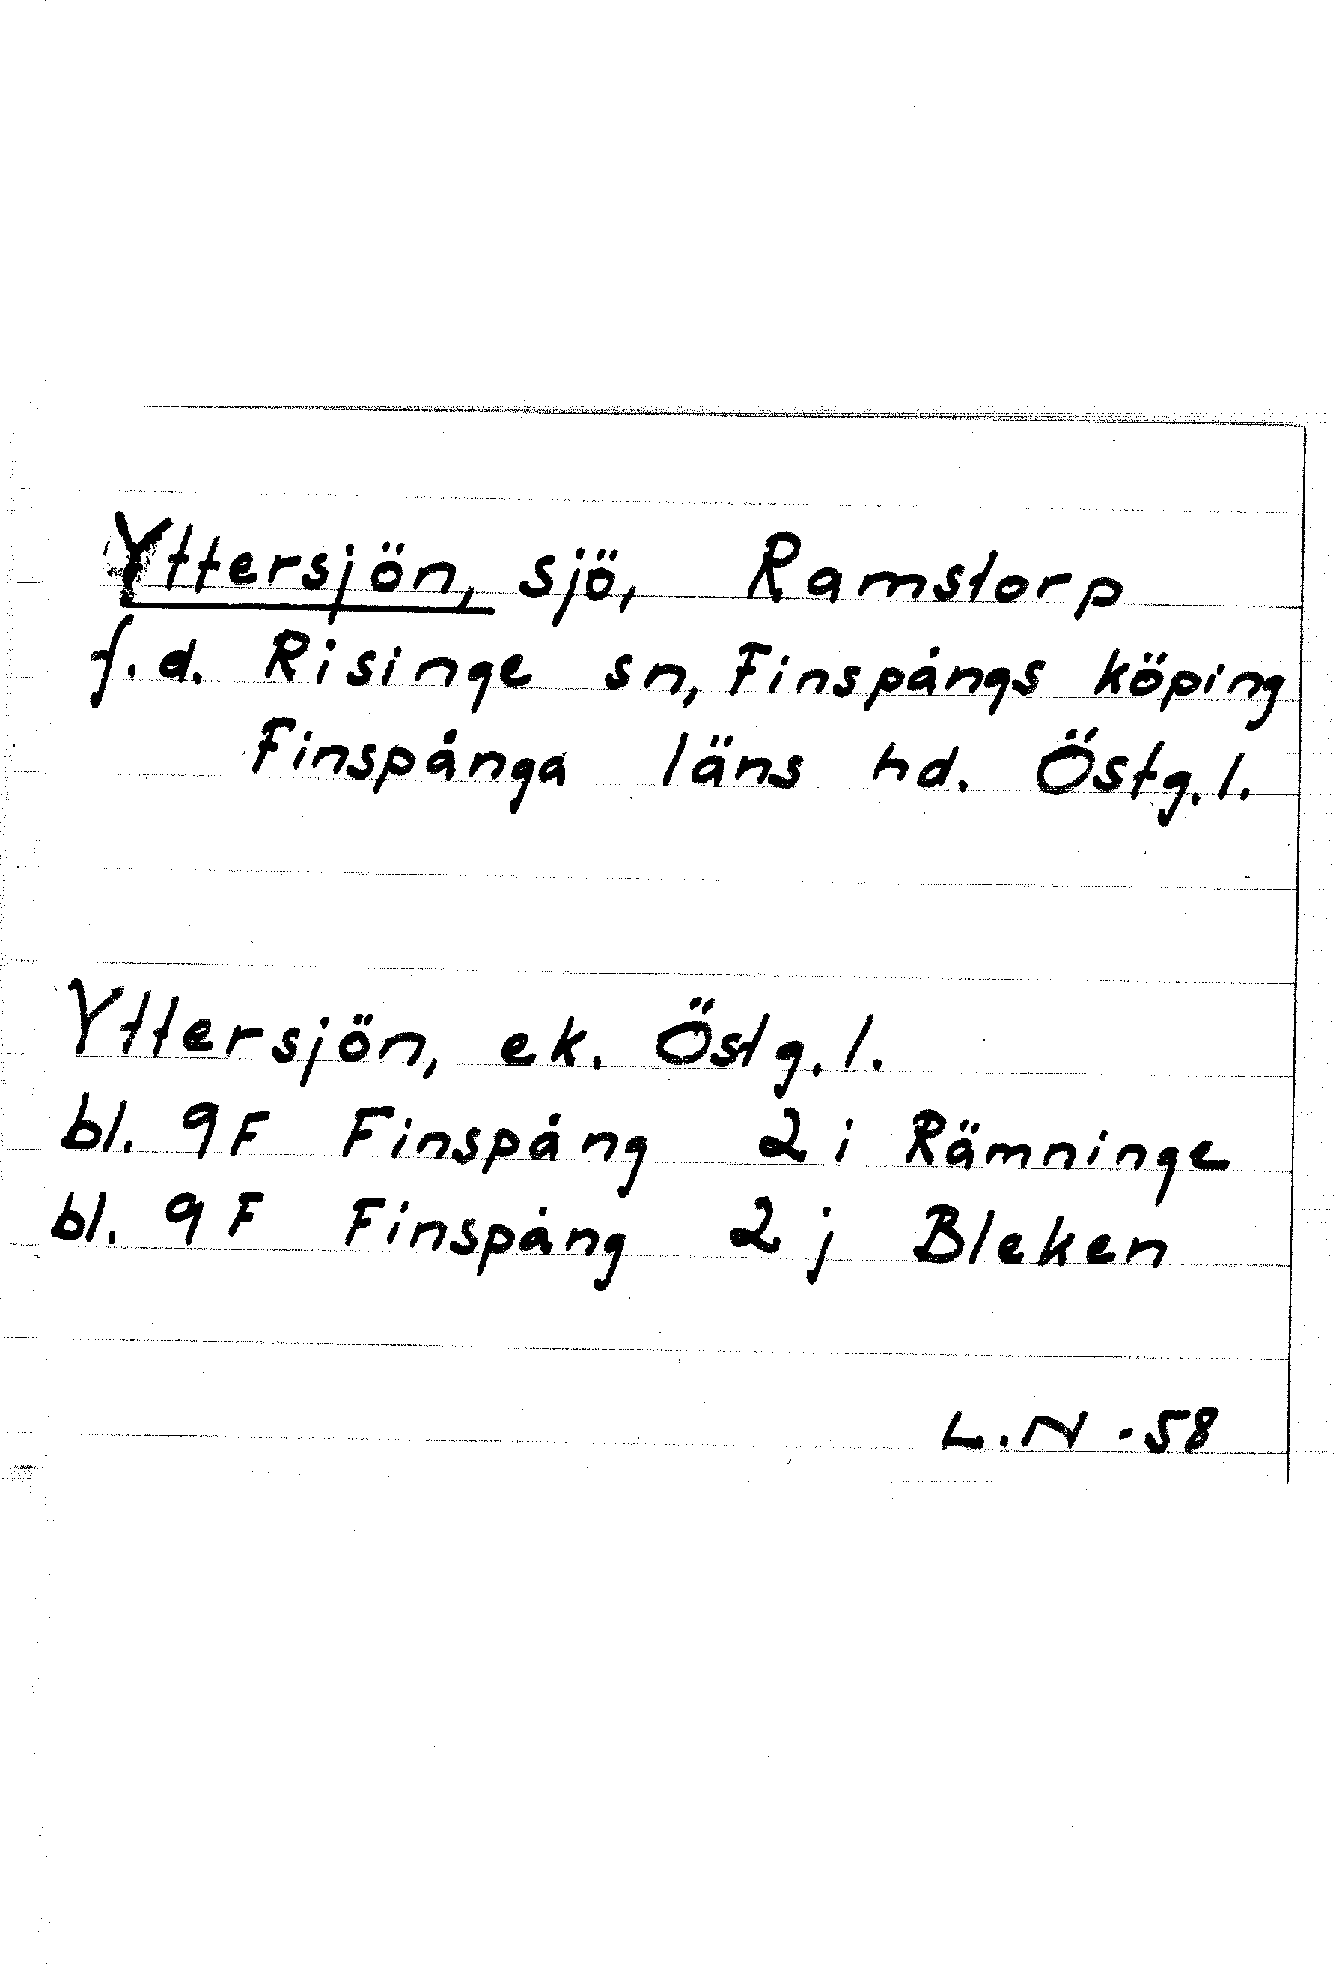 Yttersjön, sjö, Ramstorp
f.d. Risinge sn, Finspångs köping
Finspånga läns hd. Östg.l.
Yttersjön, ek. Östg.l.
bl. 9F Finspång 2 i Rämninge
bl. 9F Finspång 2 j Bleken
L.N -58